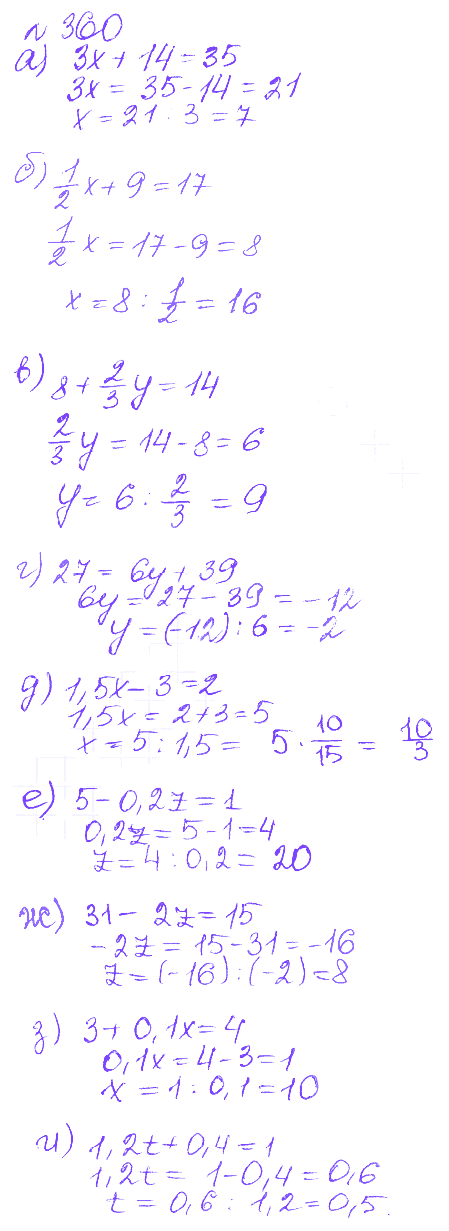 № 360
а) 3x + 14 = 35
3x = 35 - 14 = 21
x = 21 : 3 = 7
б) 1/2 x + 9 = 17
1/2 x = 17 - 9 = 8
x = 8 : 1/2 = 16
в) 8 + 2/3 y = 14
2/3 y = 14 - 8 = 6
y = 6 : 2/3 = 9
г) 27 = 6y + 39
6y = 27 - 39 = -12
y = (-12) : 6 = -2
д) 1,5x - 3 = 2
1,5x = 2 + 3 = 5
x = 5 : 1,5 = 5 · 10/15 = 10/3
е) 5 - 0,2z = 1
0,2z = 5 - 1 = 4
z = 4 : 0,2 = 20
ж) 31 - 2z = 15
-2z = 15 - 31 = -16
z = (-16) : (-2) = 8
з) 3 + 0,1x = 4
0,1x = 4 - 3 = 1
x = 1 : 0,1 = 10
и) 1,2t + 0,4 = 1
1,2t = 1 - 0,4 = 0,6
t = 0,6 : 1,2 = 0,5.